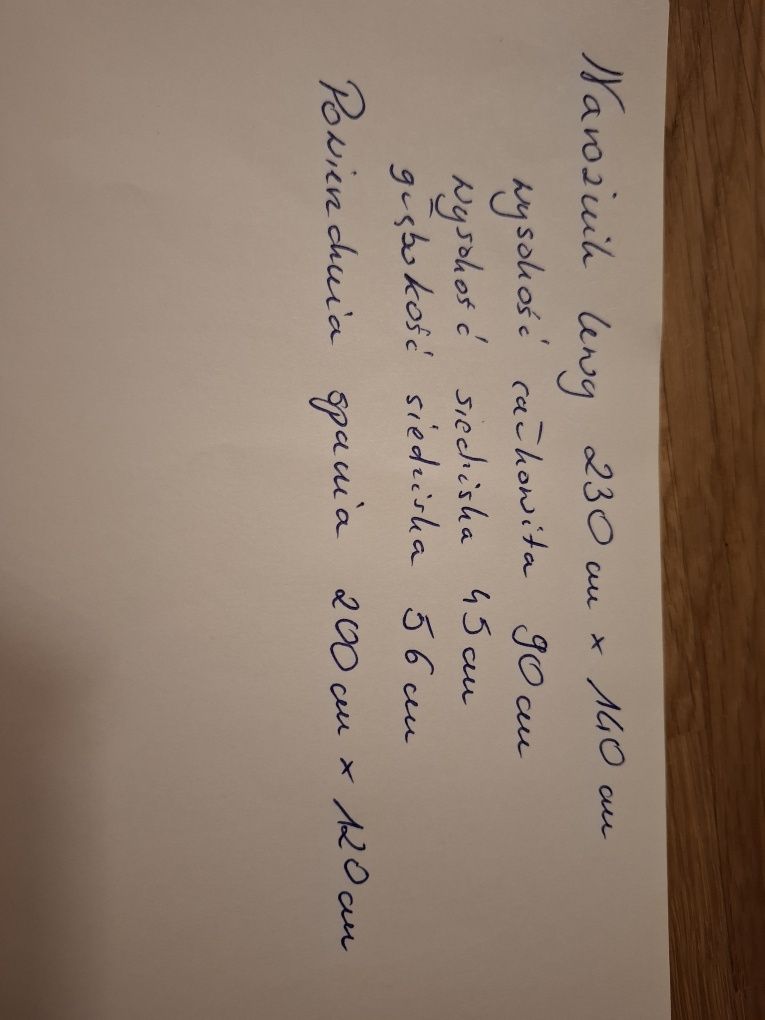 Narożnik lewy 230 cm x 140 cm
wysokość całkowita 90 cm
wysokość siedziska 45 cm
głębokość siedziska 56 cm
Powierzchnia spania 200 cm x 120 cm